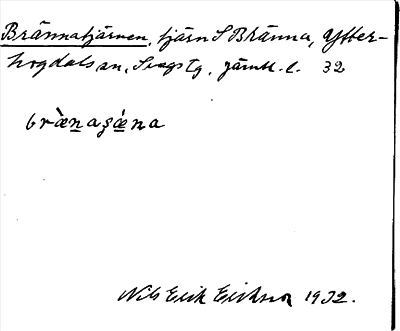 Brännatjärnen, tjärn S Bränna, Ytter-
hogdals sn, Svegs tg, Jämtl. l. 32
brὰ̀næna
Nils Erik Eriksson 1932.